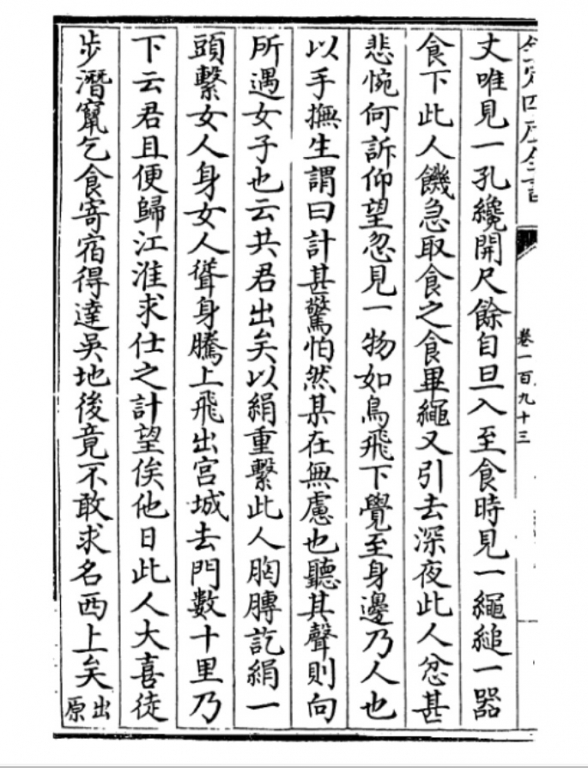 欽定四庫全書
卷一百九十三
丈唯見一孔纔開尺餘自旦入至食時見一繩縋一器
食下此人饑急取食之食畢繩又引去深夜此人忿甚
悲惋何訴仰望忽見一物如鳥飛下覺至身邊乃人也
以手撫生謂曰計甚驚怕然某在無慮也聽其聲則向
所遇女子也云共君出矣以絹重繫此人胸膊訖絹一
頭繫女人身女人聳身騰上飛出宮城去門數十里乃
下云君且便歸江淮求仕之計望俟他日此人大喜徒
步潛竄乞食寄宿得達吳地後竟不敢求名西上矣出原